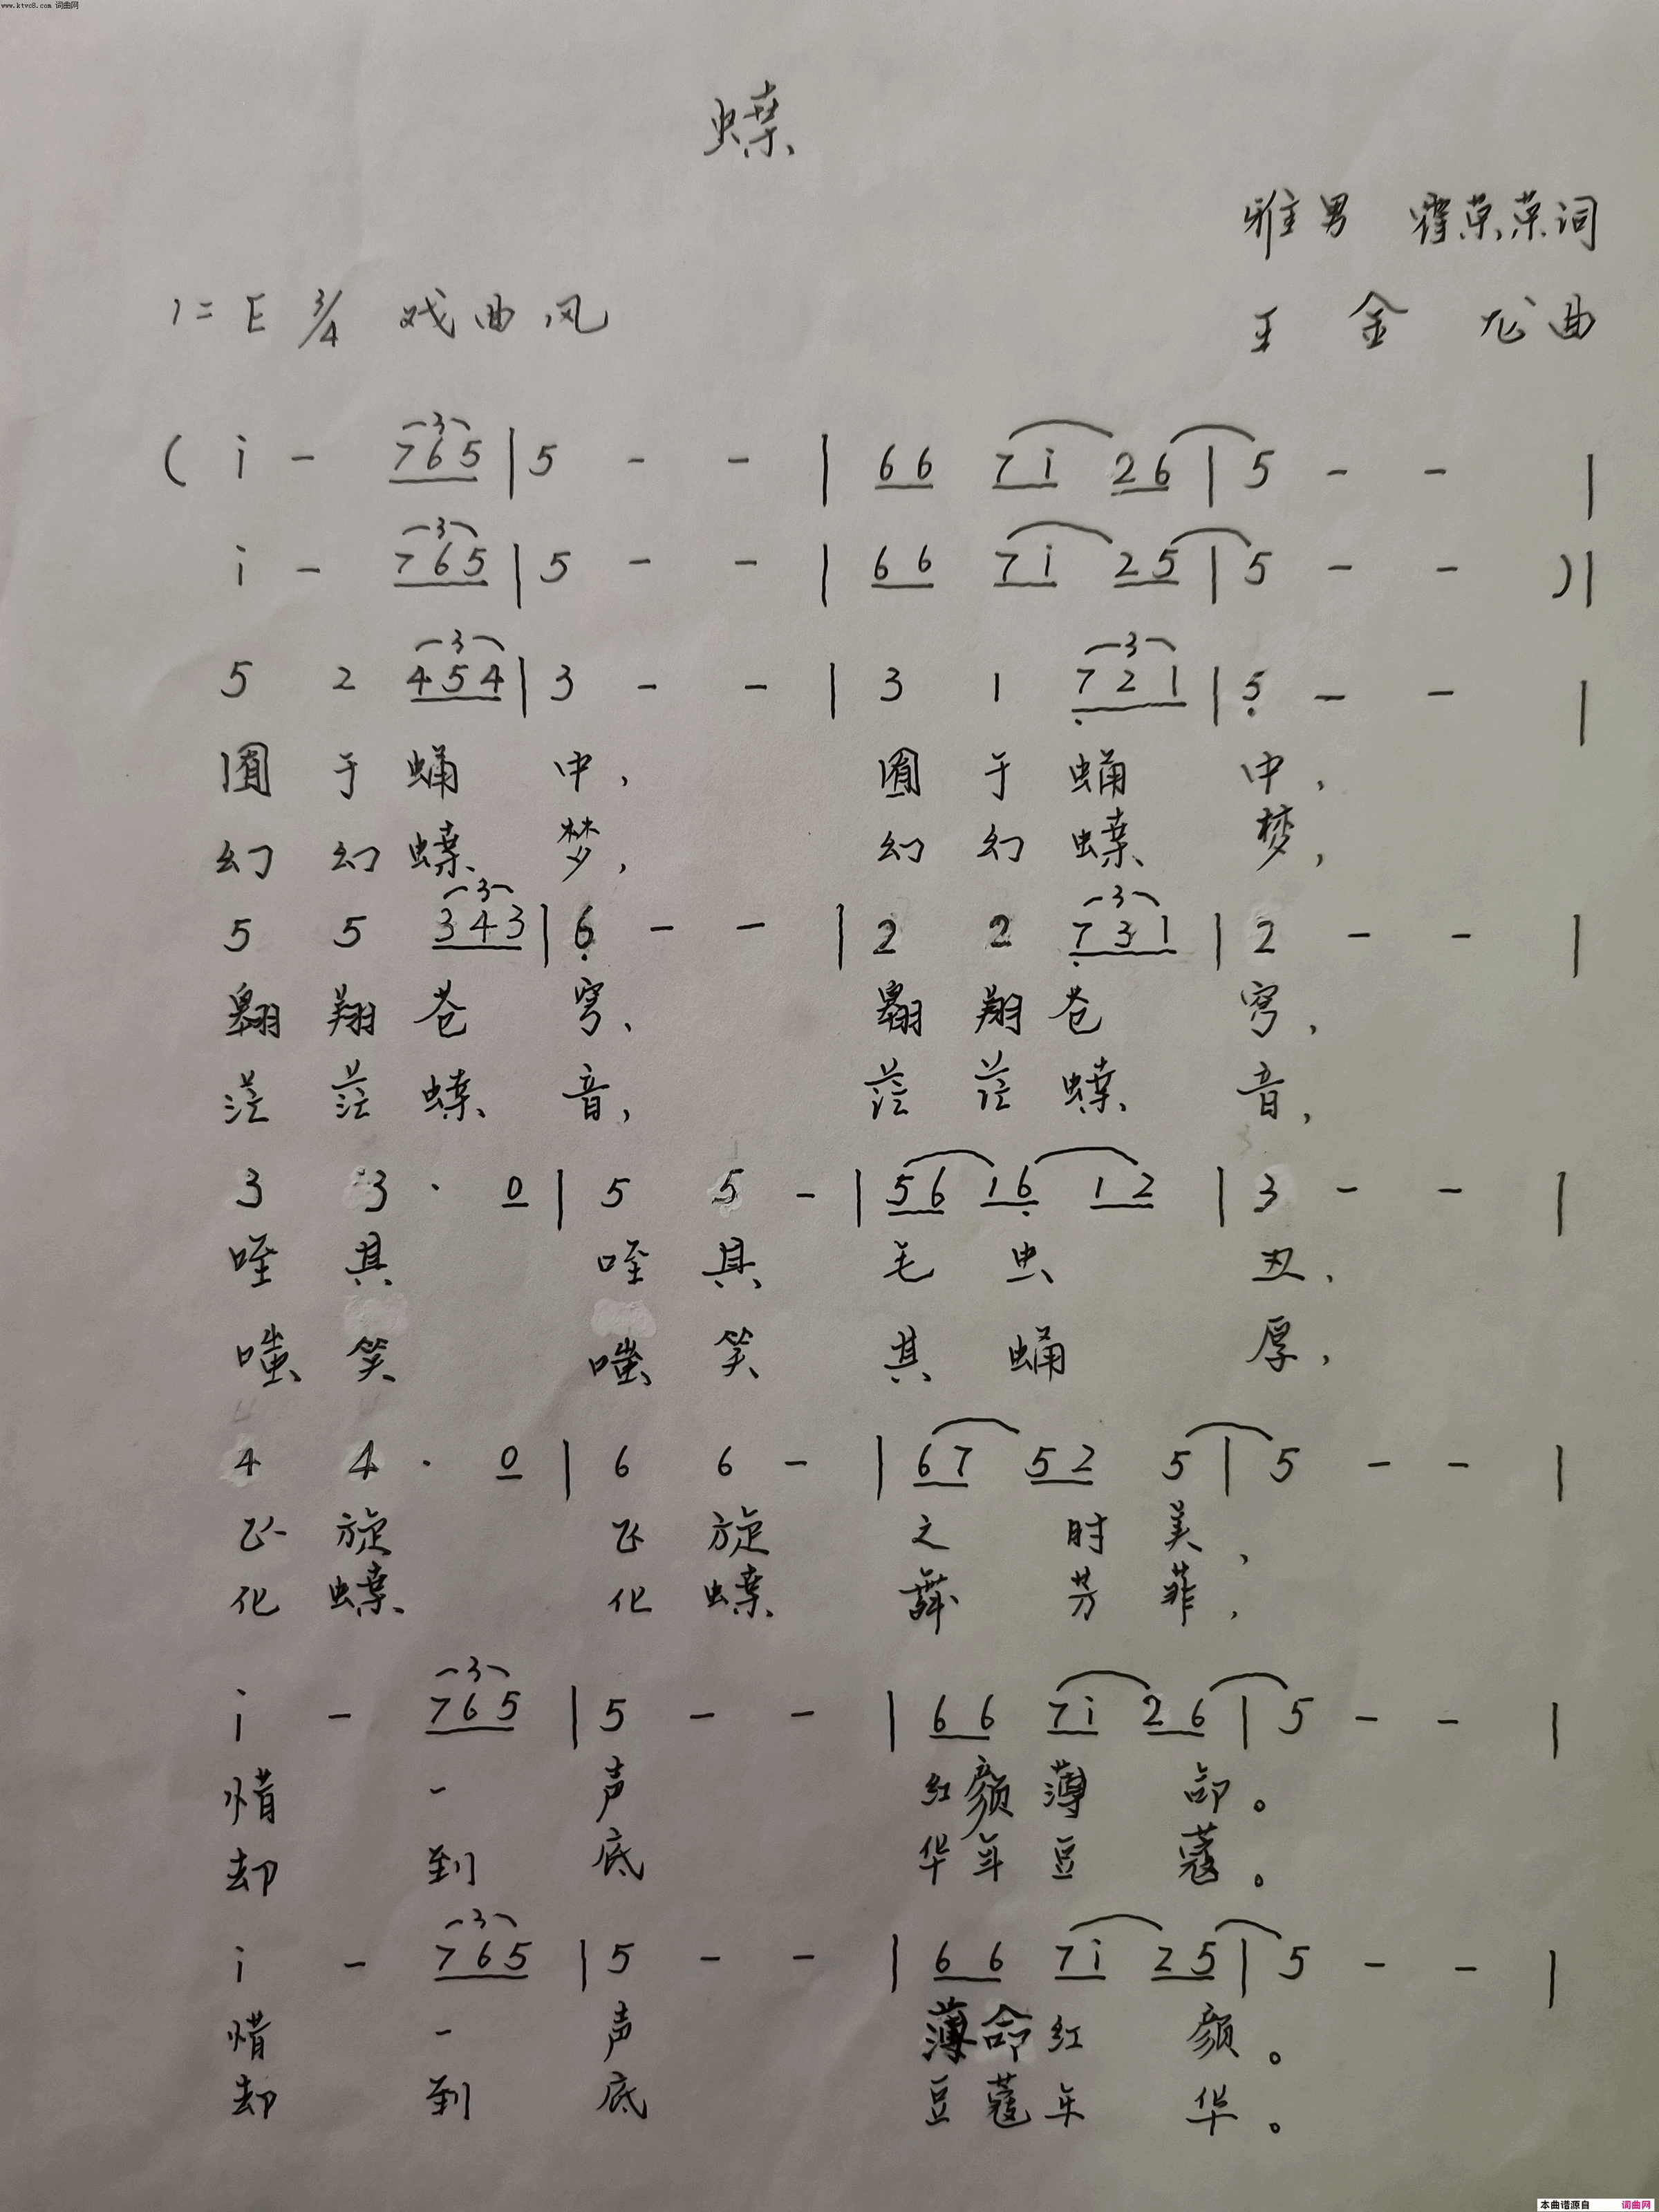 www.ktvc8.com 词曲网
蝶
雅男 霍荣荣词
1=E 3/4 戏曲风
王金龙曲
( i - 765 | 5 - - | 66 7i 26 | 5 - - |
i - 765 | 5 - - | 66 7i 25 | 5 - - ) |
5 2 454 | 3 - - | 3 1 721 | 5 - - |
囿于蛹中, 囿于蛹中,
幻幻蝶梦, 幻幻蝶梦,
5 5 343 | 6 - - | 2 2 731 | 2 - - |
翱翔苍穹、 翱翔苍穹,
茫茫蝶音, 茫茫蝶音,
3 3 · 0 | 5 5 - | 56 16 12 | 3 - - |
咥其 咥其 毛虫 丑,
嗤笑 嗤笑 其蛹 厚,
4 4 · 0 | 6 6 - | 67 52 5 | 5 - - |
飞旋 飞旋 之 时美、
化蝶 化蝶 舞 芳菲,
i - 765 | 5 - - | 66 7i 26 | 5 - - |
惜 一 声 红颜薄 命。
却 到 底 华年豆 蔻。
i - 765 | 5 - - | 66 7i 25 | 5 - - |
惜 一 声 薄命红 颜。
却 到 底 豆蔻年 华。
本曲谱源自 词曲网